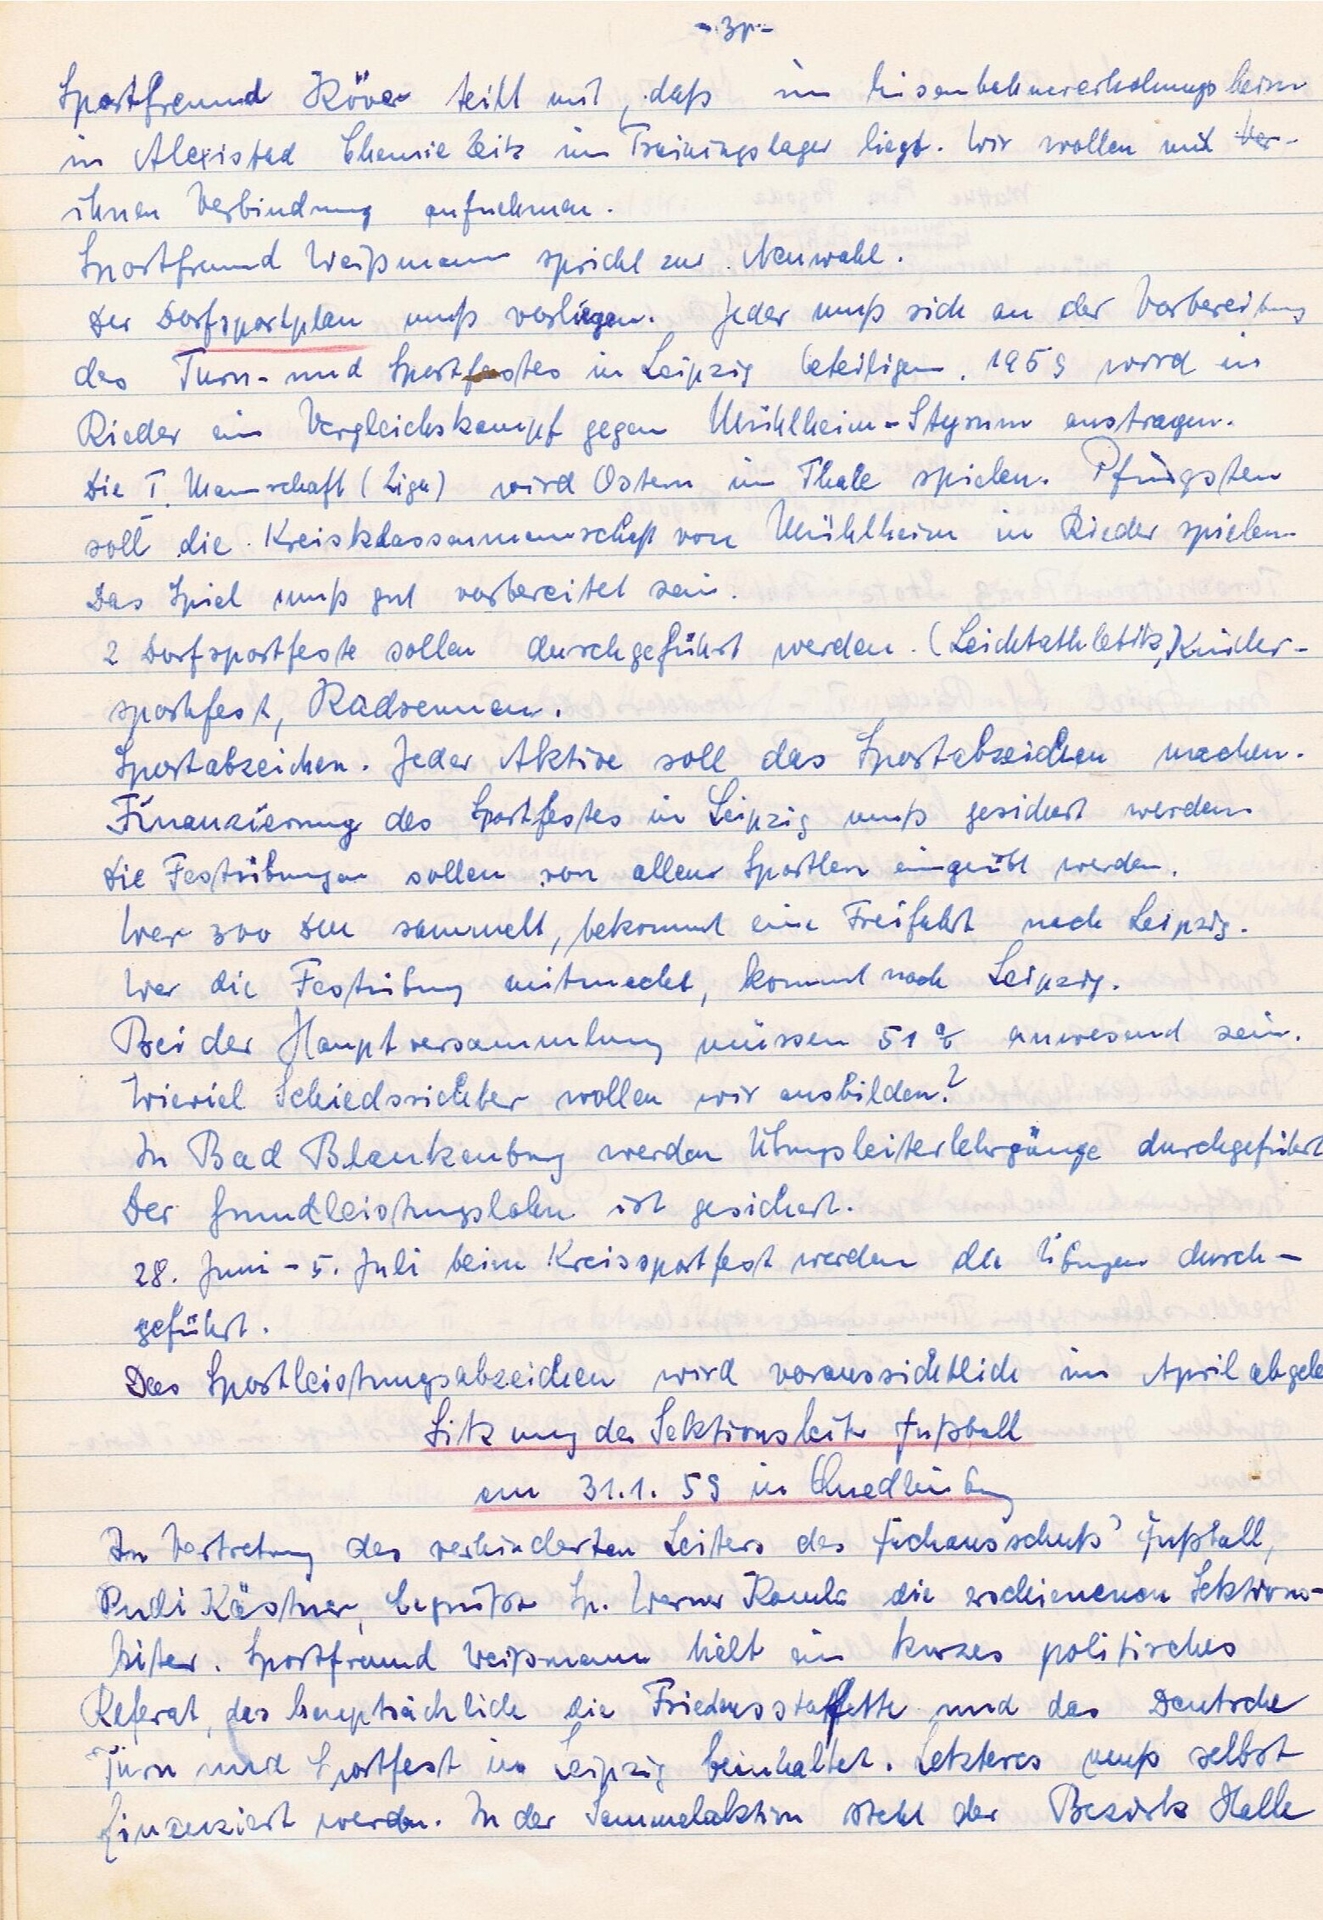 Sportfreund Röver teilt mit, daß im Eisenbahnererholungsheim
in Alexisbad Chemie Zeitz im Trainingslager liegt. Wir wollen mit Ver-
ihnen Verbindung aufnehmen.
Sportfreund Weißmann spricht zur Neuwahl.
Der Dorfsportplan muß vorliegen. Jeder muß sich an der Vorbereitung
des Turn- und Sportfestes in Leipzig beteiligen. 1959 wird in
Rieder ein Vergleichskampf gegen Mühlheim-Styrum austragen.
Die I. Mannschaft (Liga) wird Ostern in Thale spielen. Pfingsten
soll die Kreisklassenmannschaft von Mühlheim in Rieder spielen.
Das Spiel muß gut vorbereitet sein.
2 Dorfsportfeste sollen durchgeführt werden. (Leichtathletik, Kinder-
sportfest, Radrennen.
Sportabzeichen. Jeder Aktive soll das Sportabzeichen machen.
Finanzierung des Sportfestes in Leipzig muß gesichert werden
Die Festübungen sollen von allen Sportlern eingeübt werden.
Wer 300 DM sammelt, bekommt eine Freifahrt nach Leipzig.
Wer die Festübung mitmacht, kommt nach Leipzig.
Bei der Hauptversammlung müssen 51% anwesend sein.
Wieviel Schiedsrichter wollen wir ausbilden?
In Bad Blankenburg werden Übungsleiterlehrgänge durchgeführt
Der Grundleistungslohn ist gesichert.
28. Juni - 5. Juli beim Kreissportfest werden die Übungen durch-
geführt.
Das Sportleistungsabzeichen wird voraussichtlich im April abgele
Sitzung der Sektionsleiter Fußball
am 31.1.59 in Quedlinburg
In Vertretung des verhinderten Leiters des Fachausschuß' Fußball,
Rudi Kästner, begrüßte Sp. Werner die erschienenen Sektions-
leiter. Sportfreund Weißmann hielt ein kurzes politisches
Referat, das hauptsächlich die Friedensstaffette und das Deutsche
Turn und Sportfest in Leipzig beinhaltet. Letzteres muß selbst
finanziert werden. In der Sammelaktion steht der Bezirk Halle